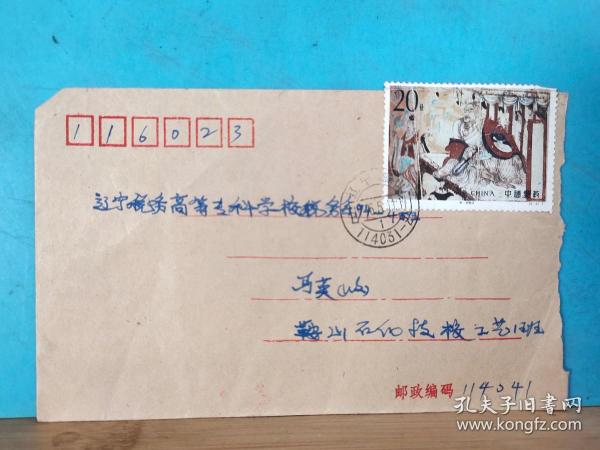 116023
20分
CHINA 中国邮政
辽宁税务高等专科学校税务系94-4班
114031
冯英
鞍山石化技校工艺12班
邮政编码 114041
孔夫子旧书网
www.kongfz.com